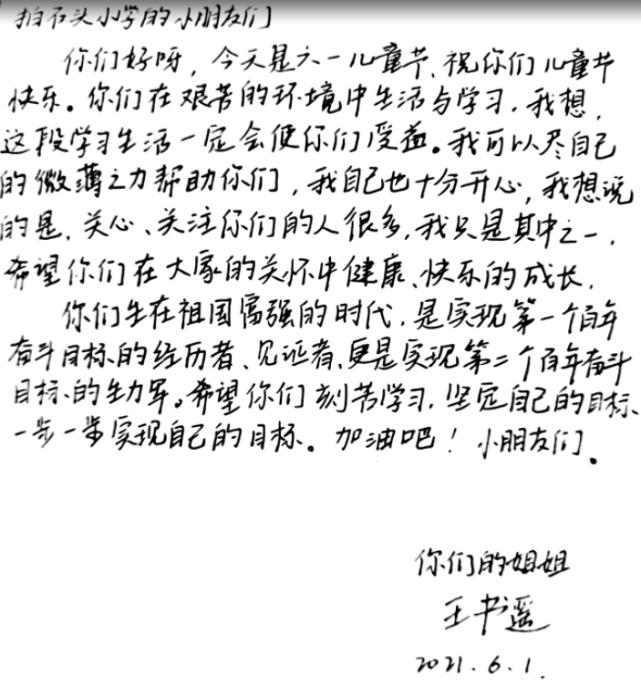 拍石头小学的小朋友们
你们好呀，今天是六一儿童节、祝你们儿童节
快乐。你们在艰苦的环境中生活与学习，我想，
这段学习生活一定会使你们受益。我可以尽自己
的微薄之力帮助你们，我自己也十分开心，我想说
的是，关心、关注你们的人很多，我只是其中之一，
希望你们在大家的关怀中健康、快乐的成长，
你们生在祖国富强的时代，是实现第一个百年
奋斗目标的经历者、见证者、更是实现第二个百年奋斗
目标的生力军。希望你们刻苦学习，坚定自己的目标、
一步一步实现自己的目标。加油吧！小朋友们。
你们的姐姐
王书遥
2021.6.1.